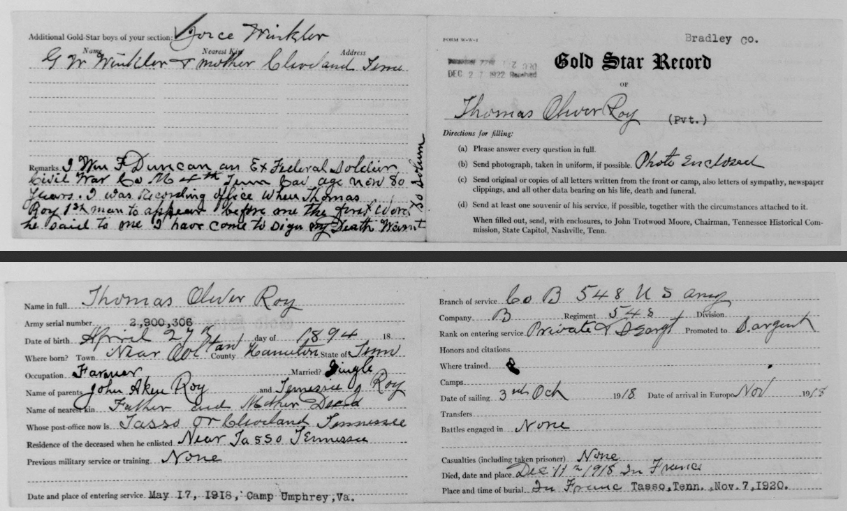 Additional Gold Star boys of your section: Joice Winkler
Name Nearest Kin Address
G W Winkler & mother Cleveland Tenn
Remarks I Wm F Duncan an Ex Federal Soldier
Civil War Co M 4th Tenn Cav age now 80
years. I was recording office when Thomas
Roy 1st man to appear before me the first word
he said to me I have come to sign my Death Warnt
FORM W-8-C
Bradley Co.
DEC 27 1922 Received
Gold Star Record
OF
Thomas Oliver Roy (Pvt.)
Directions for filling:
(a) Please answer every question in full.
(b) Send photograph, taken in uniform, if possible. Photo Enclosed
(c) Send original or copies of all letters written from the front or camp, also letters of sympathy, newspaper
clippings, and all other data bearing on his life, death and funeral.
(d) Send at least one souvenir of his service, if possible, together with the circumstances attached to it.
When filled out, send, with enclosures, to John Trotwood Moore, Chairman, Tennessee Historical Com-
mission, State Capitol, Nashville, Tenn.
Name in full Thomas Oliver Roy
Army serial number 2,900,306
Date of birth April 27th day of 1894 18
Where born? Town Near County Hamilton State of Tenn
Occupation Farmer Married? Single
Name of parents John Aken Roy and Tennessee Roy
Name of nearest kin Father and Mother Decd
Whose post-office now is Tasso or Cleveland Tennessee
Residence of the deceased when he enlisted Near Tasso Tennessee
Previous military service or training None
Date and place of entering service May 17, 1918, Camp Umphrey, Va.
Branch of service Co B 548 U S army
Company B Regiment 548 Division
Rank on entering service Private & Sargt Promoted to Sargent
Honors and citations
Where trained
Camps
Date of sailing 3rd Oct 1918 Date of arrival in Europe Nov 1918
Transfers
Battles engaged in None
Casualties (including taken prisoner) None
Died, date and place Dec 11th 1918 In France
Place and time of burial In Franc Tasso, Tenn. ,Nov. 7, 1920.